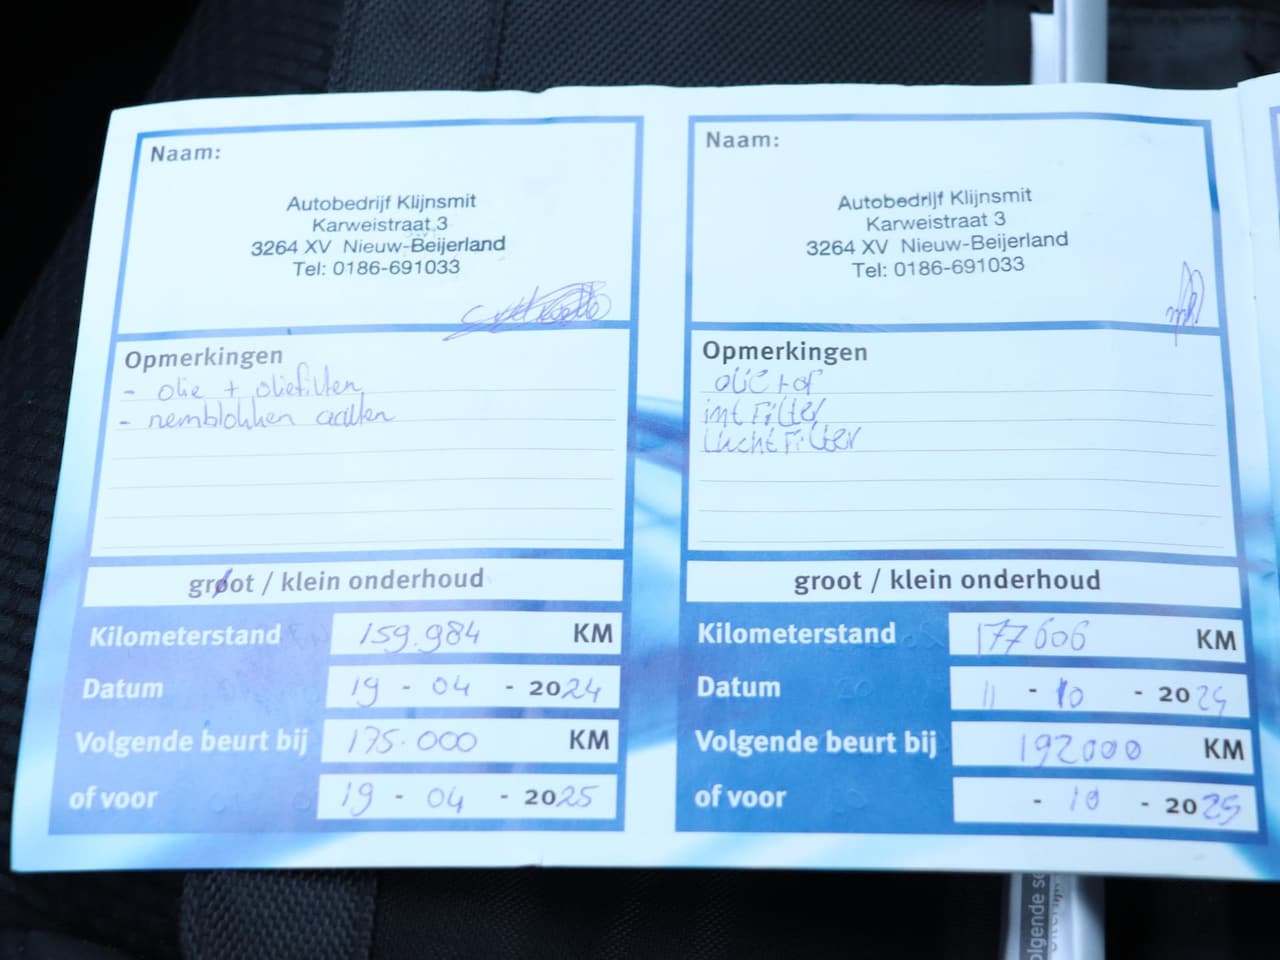 Naam:
Autobedrijf Klijnsmit
Karweistraat 3
3264 XV Nieuw-Beijerland
Tel: 0186-691033
Opmerkingen
- olie + oliefilter
- remblokken achter
groot / klein onderhoud
Kilometerstand 159.984 KM
Datum 19 - 04 - 2024
Volgende beurt bij 175.000 KM
of voor 19 - 04 - 2025
Naam:
Autobedrijf Klijnsmit
Karweistraat 3
3264 XV Nieuw-Beijerland
Tel: 0186-691033
Opmerkingen
olie + of
int Filter
Lucht Filter
groot / klein onderhoud
Kilometerstand 177606 KM
Datum 11 - 10 - 2024
Volgende beurt bij 192000 KM
of voor - 10 - 2025
olgende se